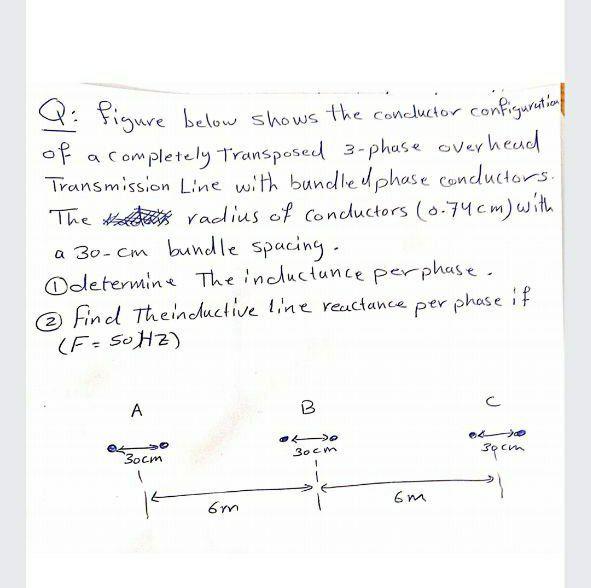 Q: figure below shows the conductor configuration
of a completely Transposed 3-phase overhead
Transmission Line with bundled phase conductors.
The radius of conductors (0.74cm) with
a 30-cm bundle spacing.
① determine The inductance per phase.
② find The inductive line reactance per phase if
(F = 50HZ)
A B C
30cm 30cm 30cm
6m 6m